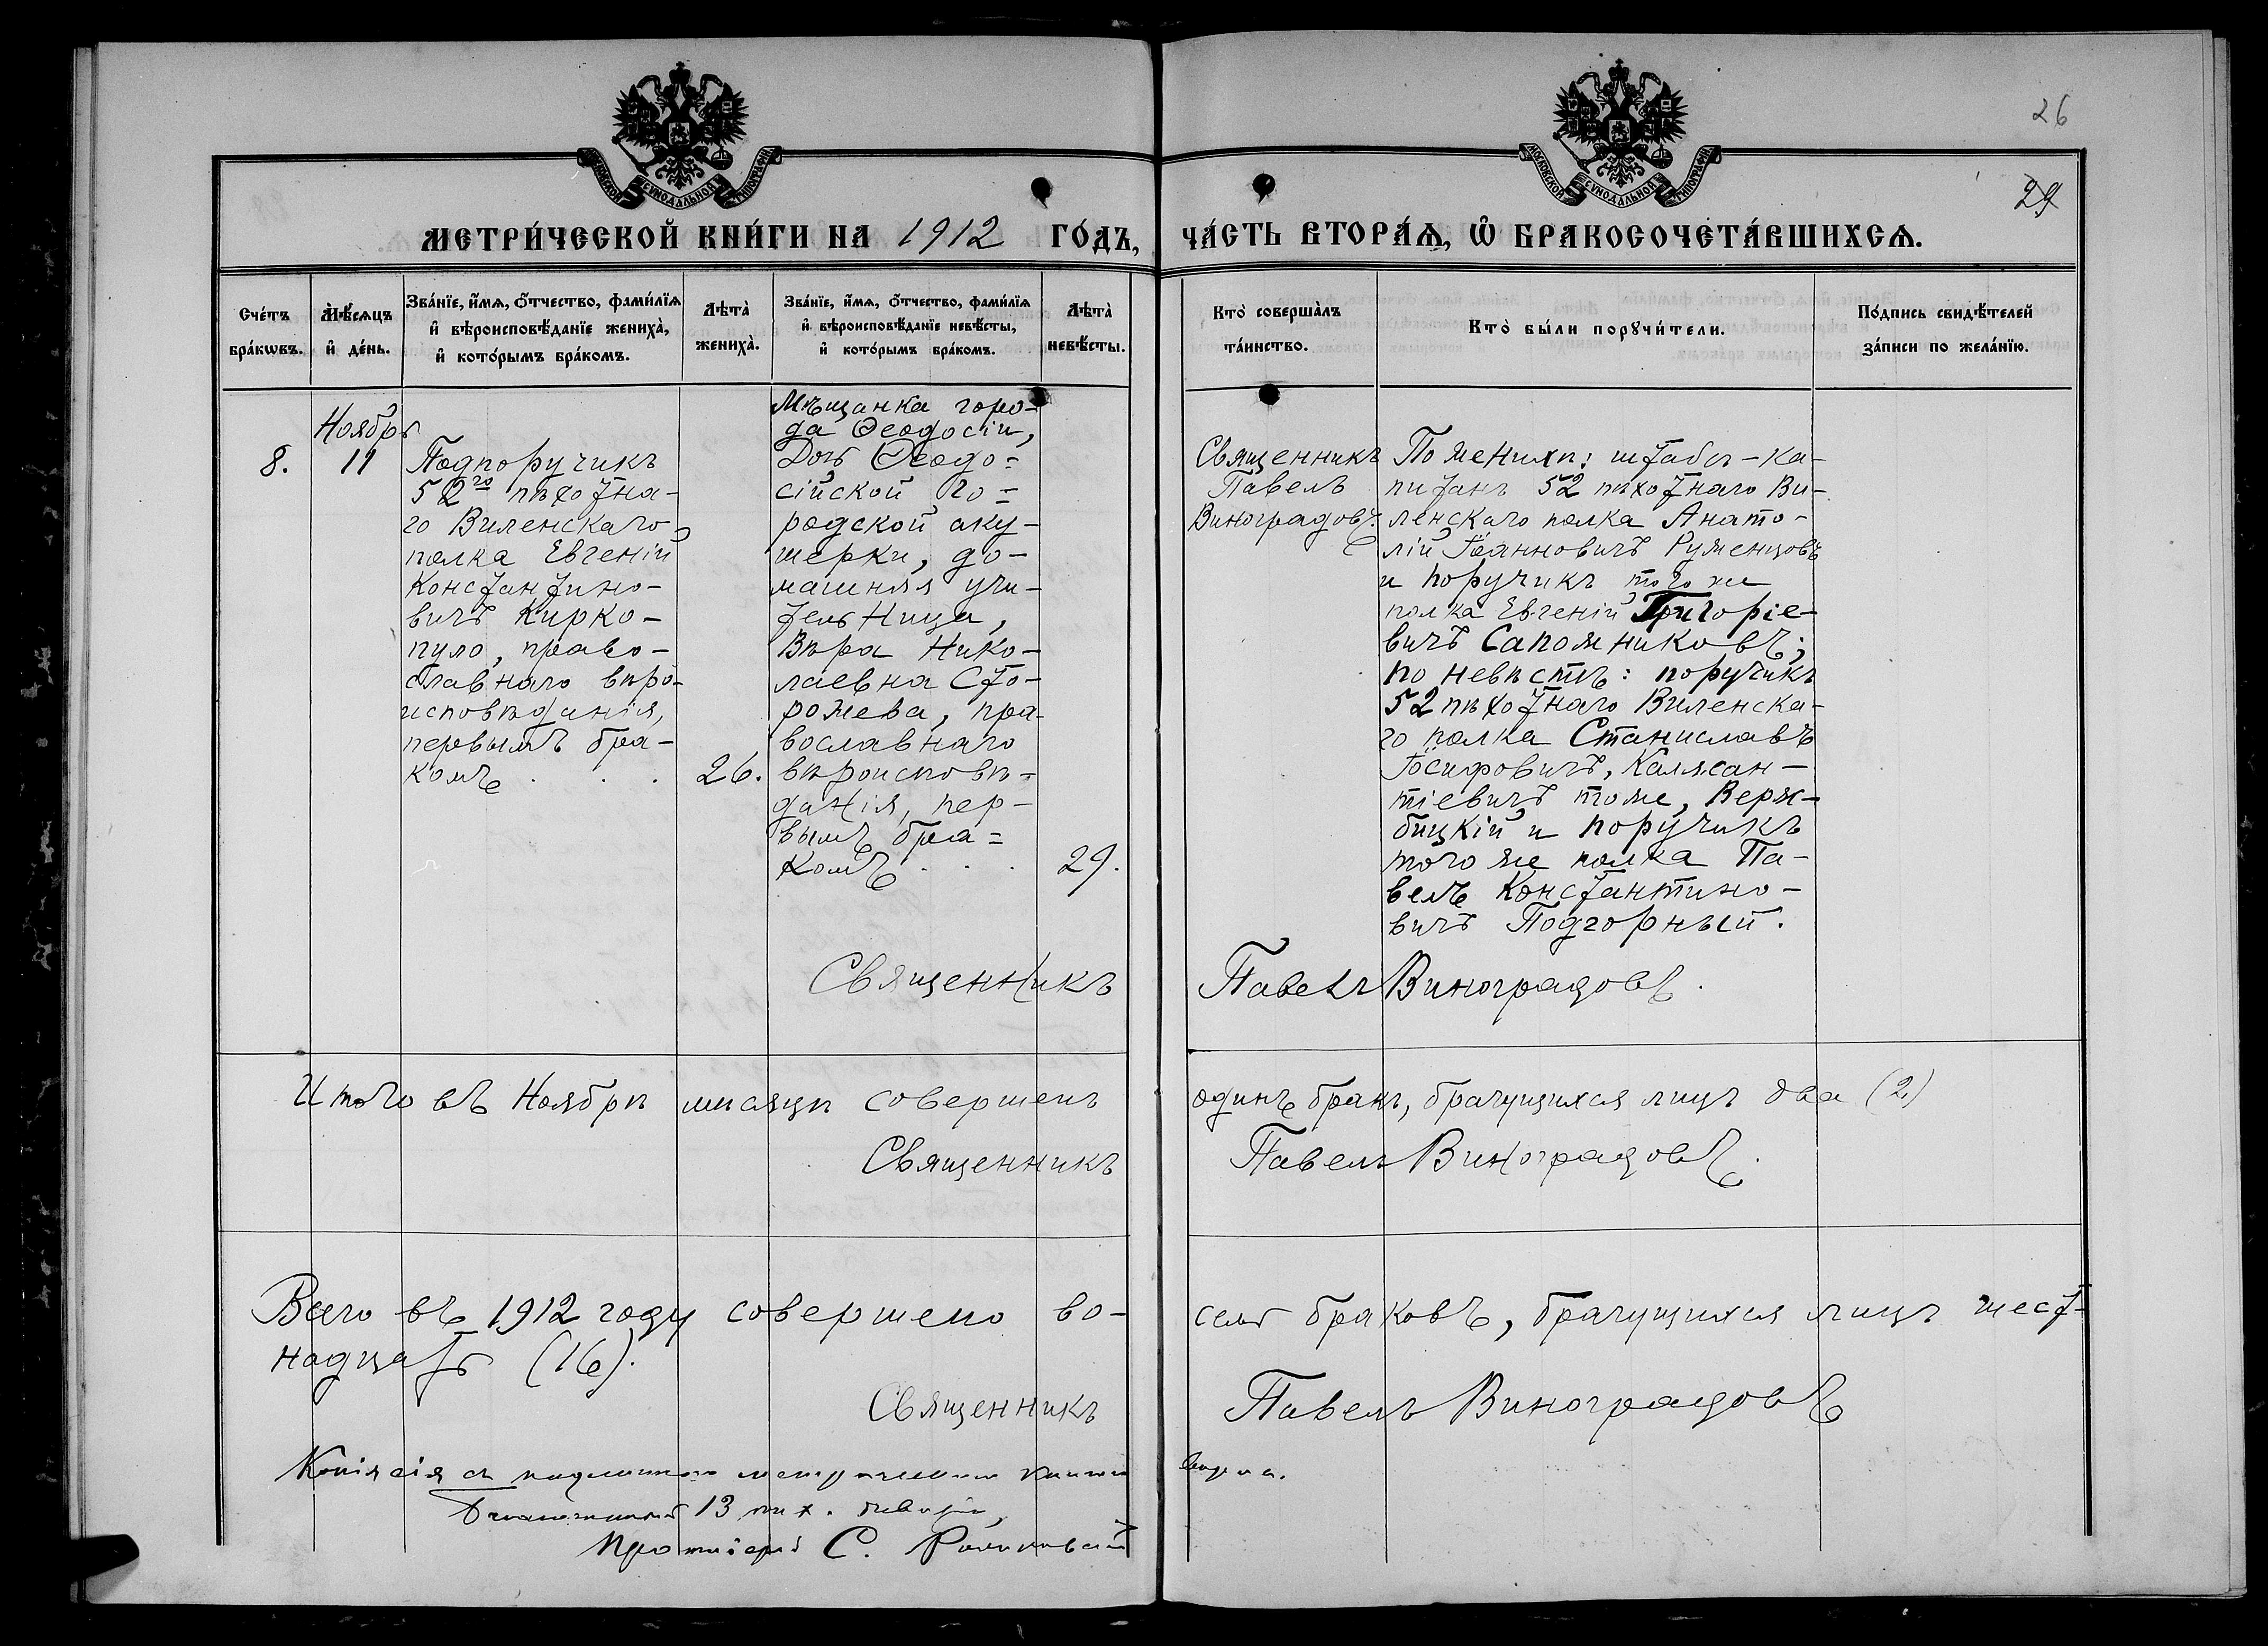 26
29
МОСКОВСКОЙ СѴНОДАЛЬНОЙ ТИПОГРАФІИ
МОСКОВСКОЙ СѴНОДАЛЬНОЙ ТИПОГРАФІИ
МЕТРИ́ЧЕСКОЙ КНИ́ГИ НА 1912 ГО́ДЪ,
ЧА́СТЬ ВТОРА́Ѧ, Ѡ҆ БРАКОСОЧЕТА́ВШИХСѦ.
Сче́тъ
бра́кѡвъ.
Мѣ́сѧцъ
и҆ де́нь.
Зва́нїе, и҆́мѧ, ѻ҆́тчество, фами́лїѧ
и҆ вѣроисповѣ́данїе жениха̀,
и҆ кото́рымъ бра́комъ.
Лѣта̀
жениха̀.
Зва́нїе, и҆́мѧ, ѻ҆́тчество, фами́лїѧ
и҆ вѣроисповѣ́данїе невѣ́сты,
и҆ кото́рымъ бра́комъ.
Лѣта̀
невѣ́сты.
Кто̀ соверша́лъ
та́инство.
Кто̀ бы́ли порꙋчи́тели.
По́дпись свидѣ́телей
за́писи по жела́нїю.
8.
Ноября
11
Подпоручикъ
52го пѣхотна-
го Виленскаго
полка Евгеній
Константино-
вичъ Кирко-
пуло, право-
славнаго вѣро-
исповѣданія,
первымъ бра-
комъ . . .
26.
Мѣщанка горо-
да Ѳеодосіи,
Дочь Ѳеодо=
сійской го=
родской аку-
шерки, до-
машняя учи-
тельница,
Вѣра Нико-
лаевна Сто-
рожева, пра-
вославнаго
вѣроисповѣ=
данія, пер-
вымъ бра=
комъ . . .
29.
Священникъ
Павелъ
Виноградовъ.
По женихѣ: штабсъ-ка-
питанъ 52 пѣхотнаго Ви-
ленскаго полка Анато-
лій Іоанновичъ Румянцовъ
и поручикъ того же
полка Евгеній Григоріе-
вичъ Сапожниковъ;
по невѣстѣ: поручикъ
52 пѣхотнаго Виленска-
го полка Станиславъ
Іосифовичъ, Калясан-
тіевичъ тоже, Верж-
бицкій и поручикъ
того же полка Па-
велъ Константино-
вичъ Подгорный.
Священникъ Павелъ Виноградовъ.
Итого въ Ноябрѣ мѣсяцѣ совершенъ одинъ бракъ, брачущихся лицъ два (2)
Священникъ Павелъ Виноградовъ.
Всего въ 1912 году совершено во- семь браковъ, брачущихся лицъ шест-
надцать (16).
Священникъ Павелъ Виноградовъ
Копія сія съ подлинною метрическою книгою вѣрна.
Благочинный 13 пѣх. дивизіи,
Протоіерей С.